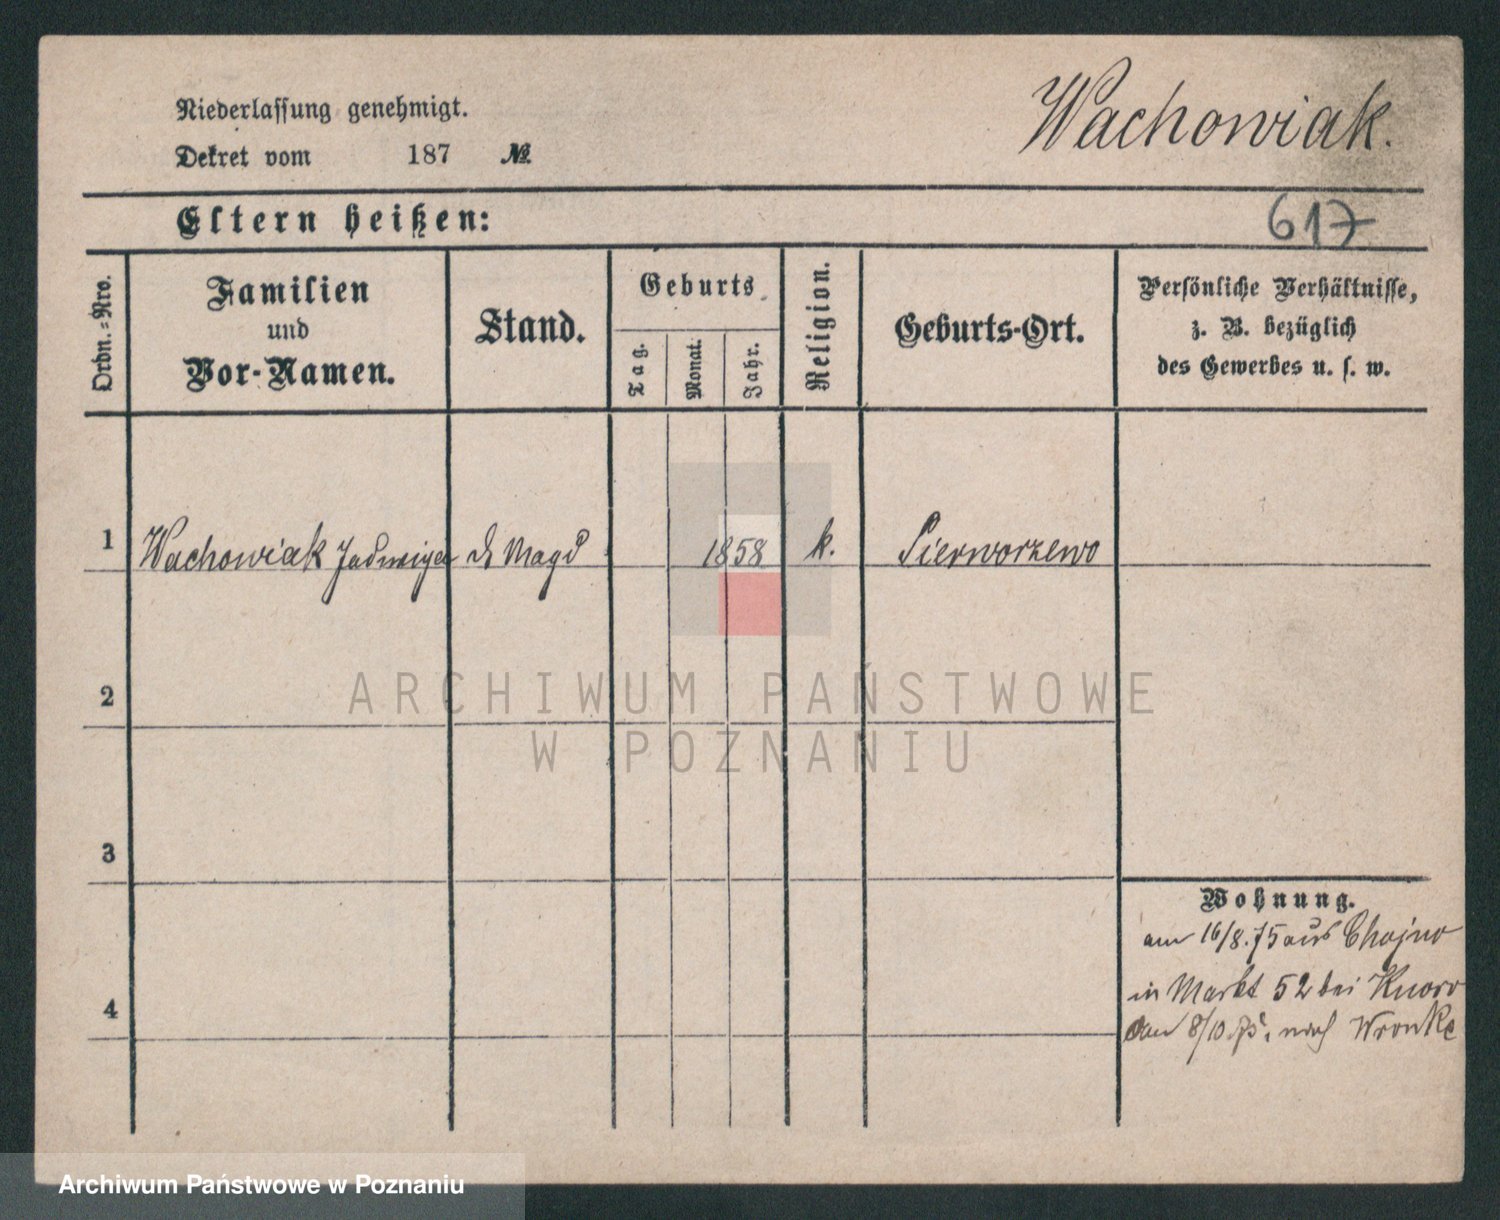 Niederlassung genehmigt.
Wachowiak.
Dekret vom 187 №
Eltern heißen:
617
Ordn.=Nro.
Familien
und
Vor-Namen.
Stand.
Geburts
Tag.
Monat.
Jahr.
Religion.
Geburts-Ort.
Persönliche Verhältnisse,
z. B. bezüglich
des Gewerbes u. s. w.
1 Wachowiak Jadwiga d Magd 1858 k. Pierworzewo
2
ARCHIWUM PAŃSTWOWE
W POZNANIU
3
Wohnung.
am 16/8.75 aus Chojno
in Markt 52 bei Knorr
4
am 8/10.75. nach Wronke
Archiwum Państwowe w Poznaniu